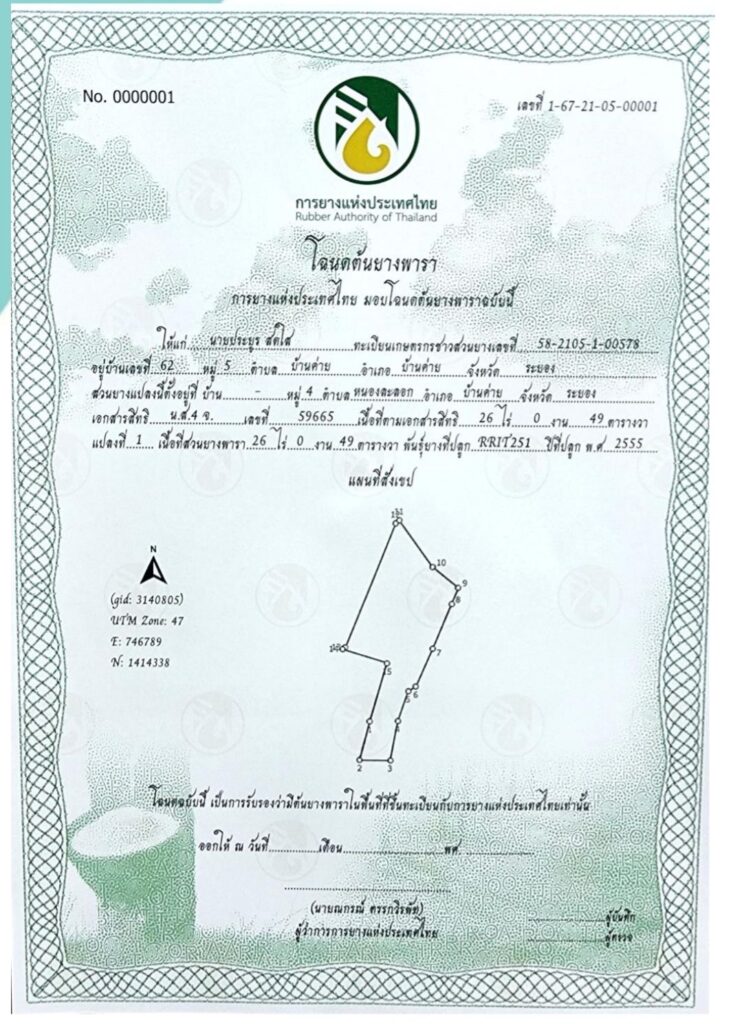 No. 0000001
เลขที่ 1-67-21-05-00001
การยางแห่งประเทศไทย
Rubber Authority of Thailand
โฉนดต้นยางพารา
การยางแห่งประเทศไทย มอบโฉนดต้นยางพาราฉบับนี้
ให้แก่ นายประยูร สดใส ทะเบียนเกษตรกรชาวสวนยางเลขที่ 58-2105-1-00578
อยู่บ้านเลขที่ 62 หมู่ 5 ตำบล บ้านค่าย อำเภอ บ้านค่าย จังหวัด ระยอง
สวนยางแปลงนี้ตั้งอยู่ที่ บ้าน - หมู่ 4 ตำบล หนองละลอก อำเภอ บ้านค่าย จังหวัด ระยอง
เอกสารสิทธิ น.ส.4 จ. เลขที่ 59665 เนื้อที่ตามเอกสารสิทธิ 26 ไร่ 0 งาน 49 ตารางวา
แปลงที่ 1 เนื้อที่สวนยางพารา 26 ไร่ 0 งาน 49 ตารางวา พันธุ์ยางที่ปลูก RRIT251 ปีที่ปลูก พ.ศ 2555
แผนที่สังเขป
11
10
9
8
N
(gid: 3140805)
UTM Zone: 47
E: 746789
N: 1414338
7
15
6
5
1
4
2
3
โฉนดฉบับนี้ เป็นการรับรองว่ามีต้นยางพาราในพื้นที่ที่ขึ้นทะเบียนกับการยางแห่งประเทศไทยเท่านั้น
ออกให้ ณ วันที่ เดือน พศ.
(นายณกรณ์ ตรรกวิรพัท)
ผู้ว่าการการยางแห่งประเทศไทย
ผู้บันทึก
ผู้ตรวจ